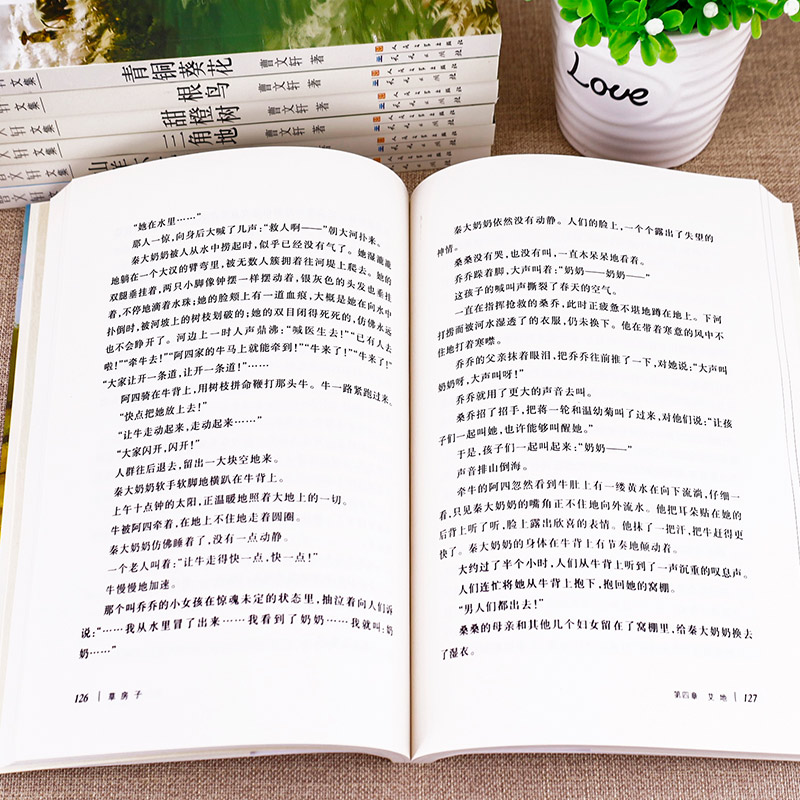 青铜葵花 曹文轩 著
文集
根鸟 曹文轩 著
轩文集
甜橙树 曹文轩 著
文轩文集
三角地 曹文轩 著
轩文集
Love
“她在水里……”
那人一惊，向身后大喊了几声：“救人啊——”朝大河扑来。
秦大奶奶被人从水中捞起时，似乎已经没有气了。她湿漉漉
地躺在一个大汉的臂弯里，被无数人簇拥着往河堤上爬去。她的
双腿垂挂着，两只小脚像钟摆一样摆动着，银灰色的头发也垂挂
着，不停地滴着水珠；她的脸颊上有一道血痕，大概是她在向水中
扑倒时，被河坡上的树枝划破的；她的双目闭得死死的，仿佛永远
也不会睁开了。河边上一时人声鼎沸：“喊医生去！”“已有人去
啦！”“牵牛去！”“阿四家的牛马上就能牵到！”“牛来了！”“牛来了！”
“大家让开一条道，让开一条道！”……
阿四骑在牛背上，用树枝拼命鞭打那头牛。牛一路紧跑过来。
“快点把她放上去！”
“让牛走动起来，走动起来……”
“大家闪开，闪开！”
人群往后退去，留出一大块空地来。
秦大奶奶软手软脚地横趴在牛背上。
上午十点钟的太阳，正温暖地照着大地上的一切。
牛被阿四牵着，在地上不住地走着圆圈。
秦大奶奶仿佛睡着了，没有一点动静。
一个老人叫着：“让牛走得快一点，快一点！”
牛慢慢地加速。
那个叫乔乔的小女孩在惊魂未定的状态里，抽泣着向人们诉
说：“……我从水里冒了出来……我看到了奶奶……我就叫：奶
奶……”
126 草房子
秦大奶奶依然没有动静。人们的脸上，一个个露出了失望的
神情。
桑桑没有哭，也没有叫，一直木呆呆地看着。
乔乔跺着脚，大声叫着：“奶奶——奶奶——”
这孩子的喊叫声撕裂了春天的空气。
一直在指挥抢救的桑乔，此时正疲惫不堪地蹲在地上。下河
打捞而被河水湿透了的衣服，仍未换下。他在带着寒意的风中不
住地打着寒噤。
乔乔的父亲抹着眼泪，把乔乔往前推了一下，对她说：“大声叫
奶奶呀，大声叫呀！”
乔乔就用了更大的声音去叫。
桑乔招了招手，把蒋一轮和温幼菊叫了过来，对他们说：“让孩
子们一起叫她，也许能够叫醒她。”
于是，孩子们一起叫起来：“奶奶——”
声音排山倒海。
牵牛的阿四忽然看到牛肚上有一缕黄水在向下流淌，仔细一
看，只见秦大奶奶的嘴角正不住地向外流水。他把耳朵贴在她的
后背上听了听，脸上露出欣喜的表情。他抹了一把汗，把牛赶得更
快了。秦大奶奶的身体在牛背上有节奏地倾动着。
大约过了半个小时，人们从牛背上听到了一声沉重的叹息声。
人们连忙将她从牛背上抱下，抱回她的窝棚。
“男人们都出去！”
桑桑的母亲和其他几个妇女留在了窝棚里，给秦大奶奶换去
了湿衣。
第四章 艾地 127